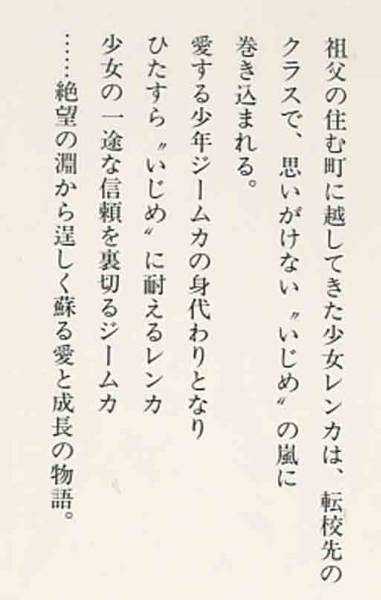 祖父の住む町に越してきた少女レンカは、転校先の
クラスで、思いがけない〝いじめ〟の嵐に
巻き込まれる。
愛する少年ジームカの身代わりとなり
ひたすら〝いじめ〟に耐えるレンカ
少女の一途な信頼を裏切るジームカ
……絶望の淵から逞しく蘇る愛と成長の物語。